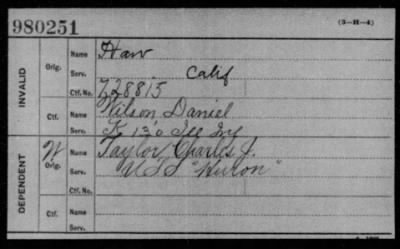 980251
(3-H-4)
INVALID
Orig.
Name Haw
Serv. Calif
Ctf. No. 728815
Ctf.
Name Wilson Daniel
Serv. K 130 Ill Inf
DEPENDENT
W Orig.
Name Taylor, Charles J.
Serv. U.S.S. "Huron"
Ctf. No.
Ctf.
Name
Serv.